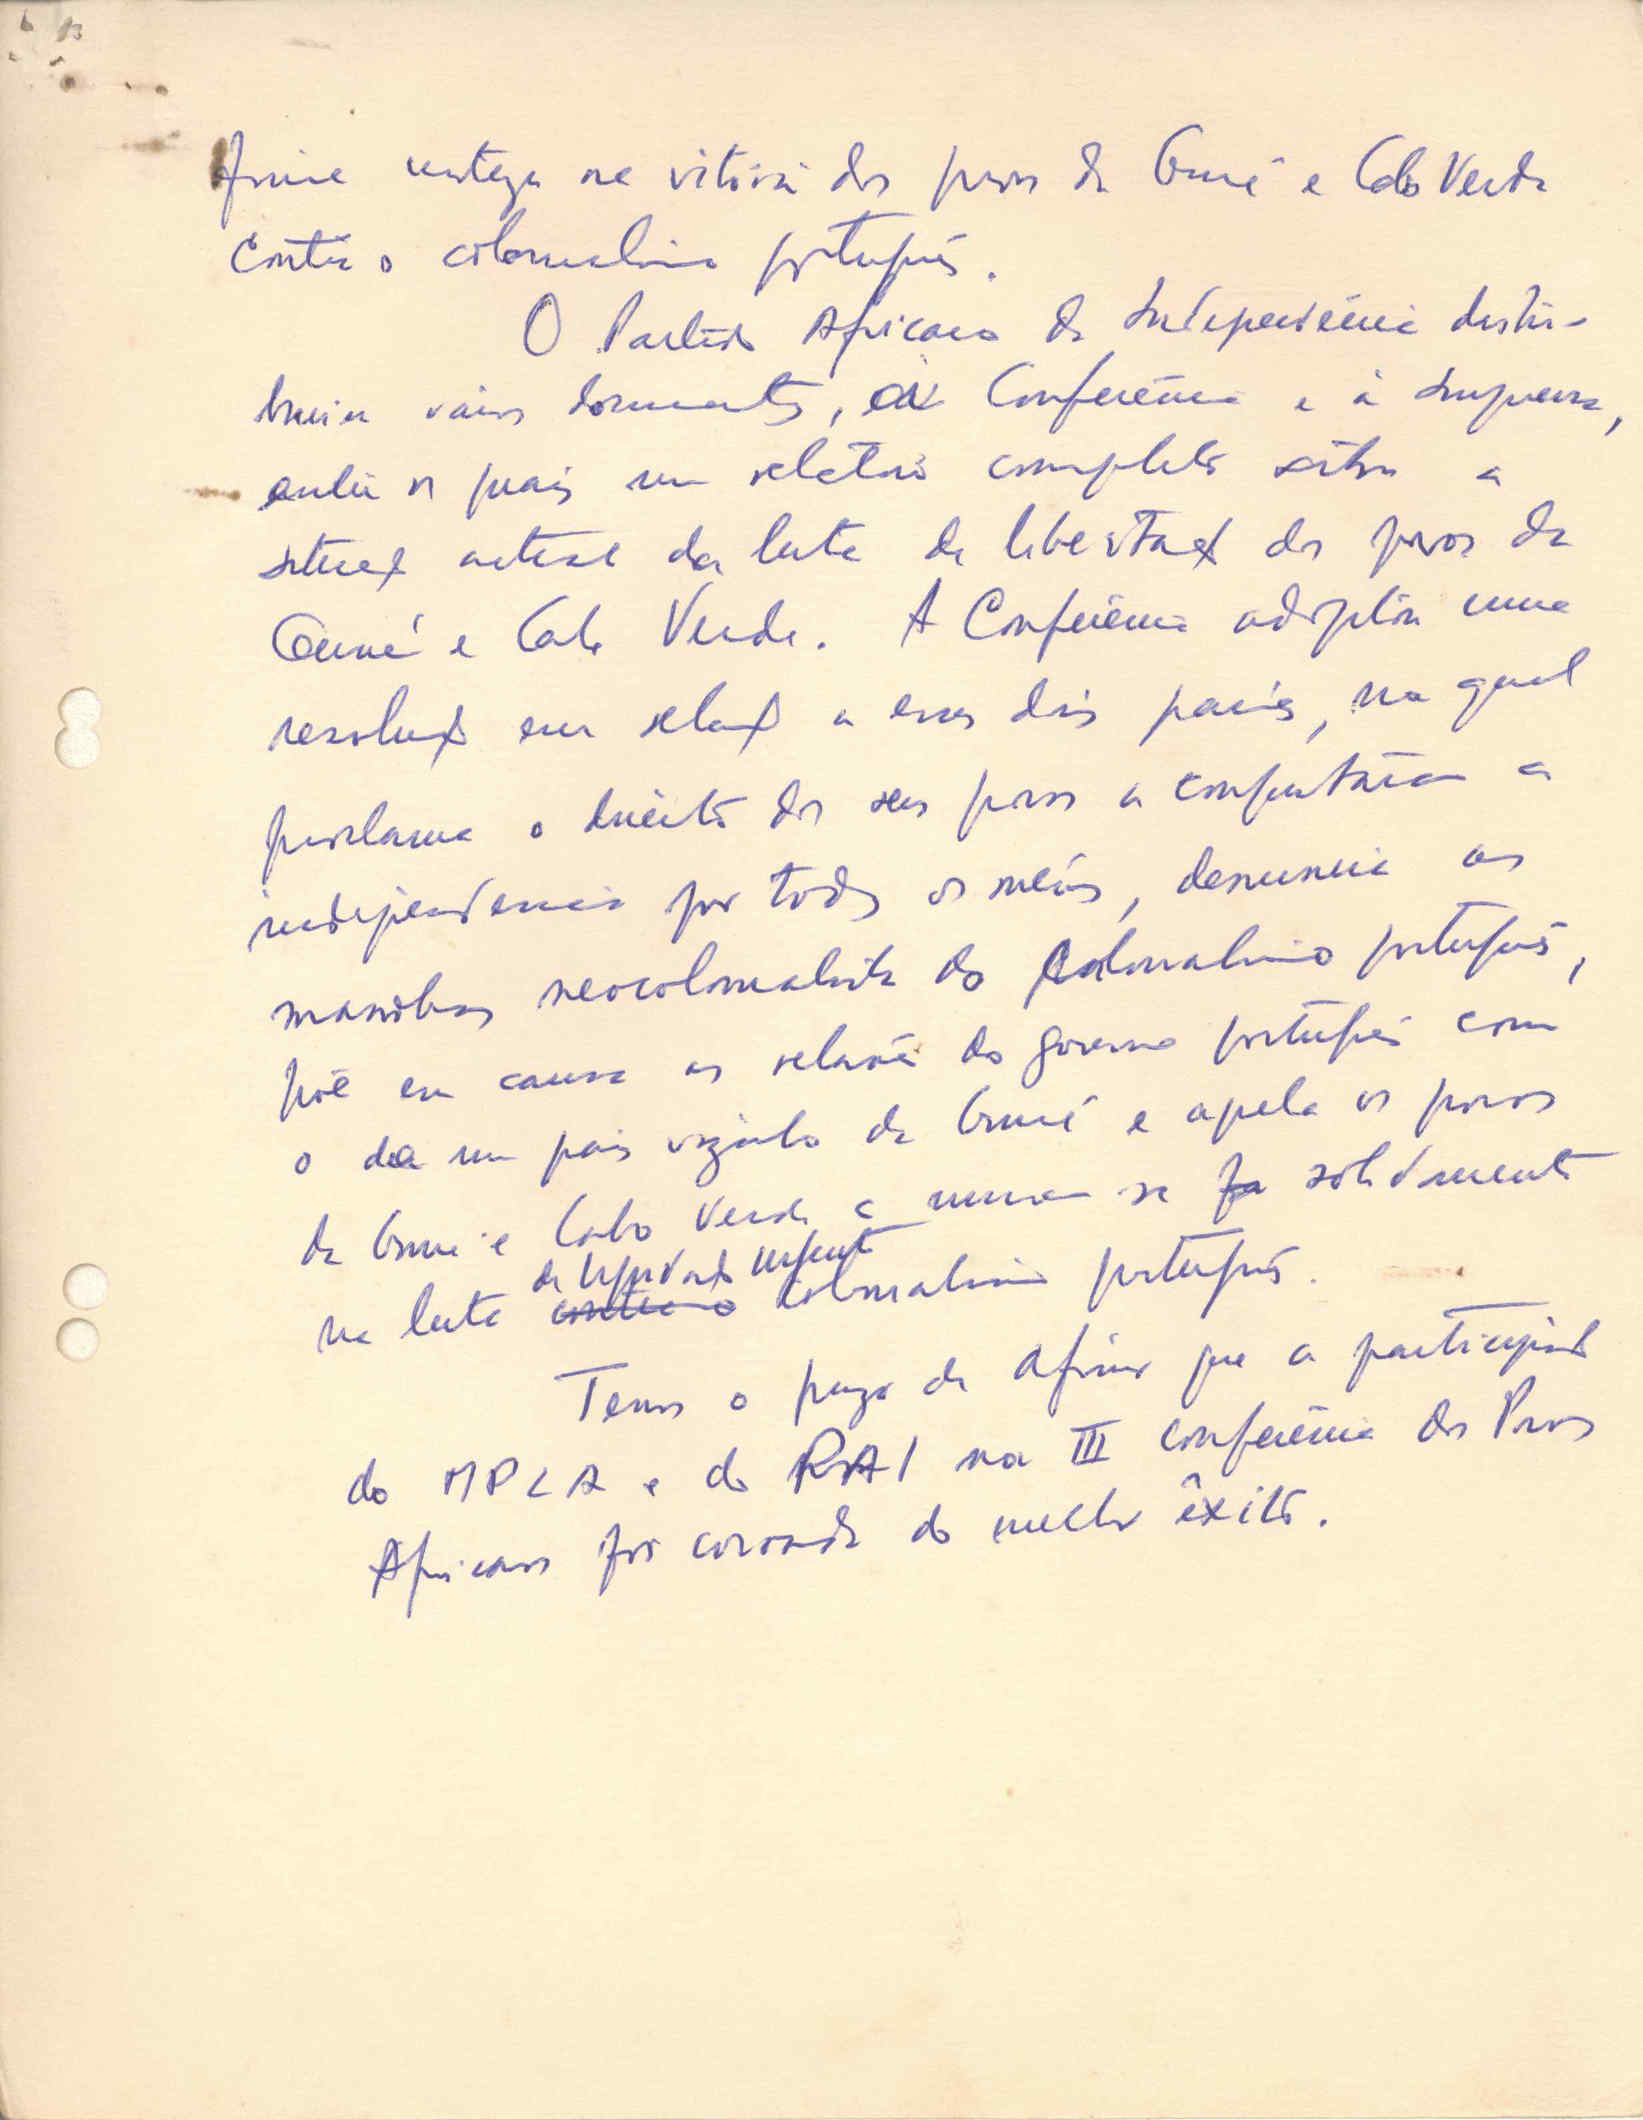 firme certeza na vitória dos povos da Guiné e Cabo Verde
contra o colonialismo português.
O Partido Africano da Independência distri-
buiu vários documentos, à Conferência e à Imprensa,
entre os quais um relatório completo sobre a
situação actual da luta de libertação dos povos da
Guiné e Cabo Verde. A Conferência adoptou uma
resolução em relação a esses dois países, na qual
proclama o direito dos seus povos a conquistarem a
independência por todos os meios, denuncia as
manobras neocolonialistas do colonialismo português,
põe em causa as relações do governo português com
o de um país vizinho da Guiné e apela os povos
da Guiné e Cabo Verde a unirem-se solidamente
de liquidação urgente
na luta contra o colonialismo português.
Temos o prazer de afirmar que a participação
do MPLA e do PAI na III Conferência dos Povos
Africanos foi coroada do melhor êxito.